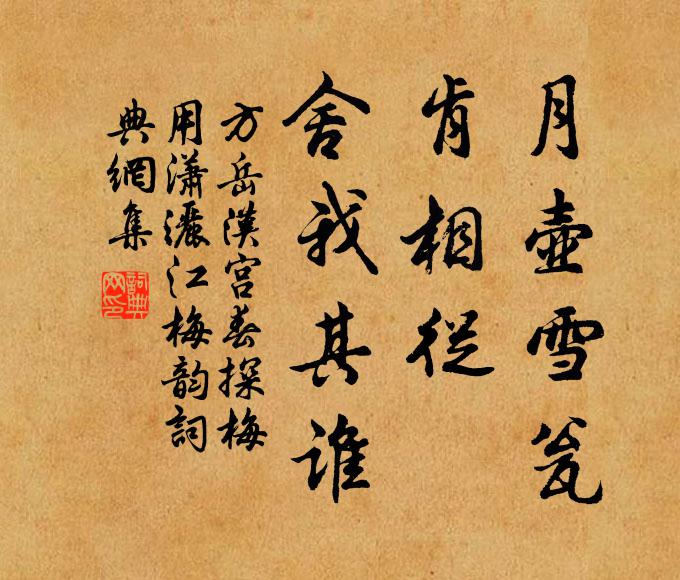 月壺雪瓮
肯相從
舍我其誰
方岳漢宮春探梅
用瀟灑江梅韵詞
典網集
詞典
网印